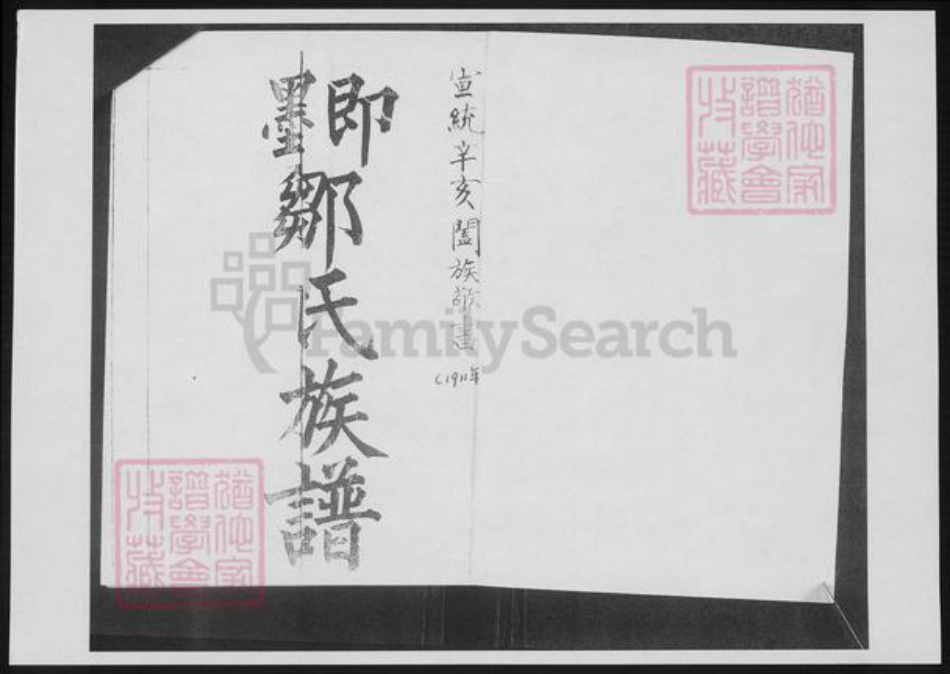 宣統辛亥闔族敬
(1911年
即墨
鄒氏族譜
猶他家
譜學會
收藏
猶他家
譜學會
收藏
FamilySearch